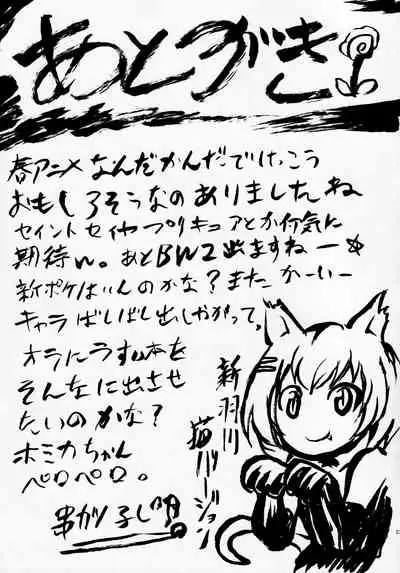 あとがき
春アニメなんだかんだでけっこう
おもしろそうなのありましたね
セイントセイヤプリキュアとか何気に
期待w。あとBW2出ますねー
新ポケはいんのかな?またかーいー
キャラばしばし出しやがって。
オラにうす本を
そんなに出させ
たいのかな?
ホミカちゃん
ペロペロ。
新羽川
猫バージョン
串カツ